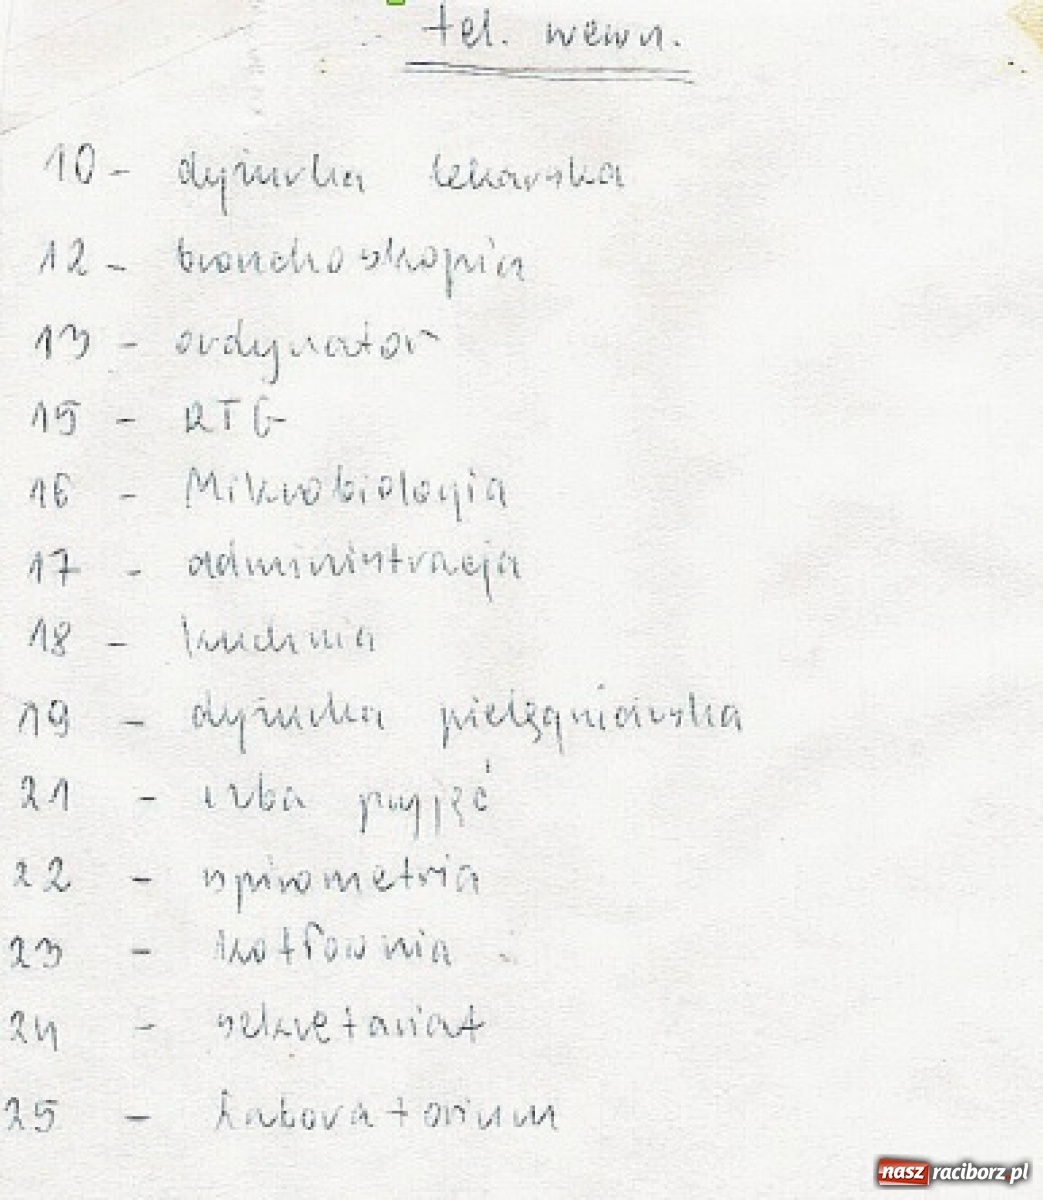 tel. wewn.
10 - dyżurka lekarska
12 - bronchoskopia
13 - ordynator
15 - RTG
16 - Mikrobiologia
17 - administracja
18 - kuchnia
19 - dyżurka pielęgniarska
21 - izba przyjęć
22 - spirometria
23 - kotłownia
24 - sekretariat
25 - Laboratorium
nasz raciborz.pl